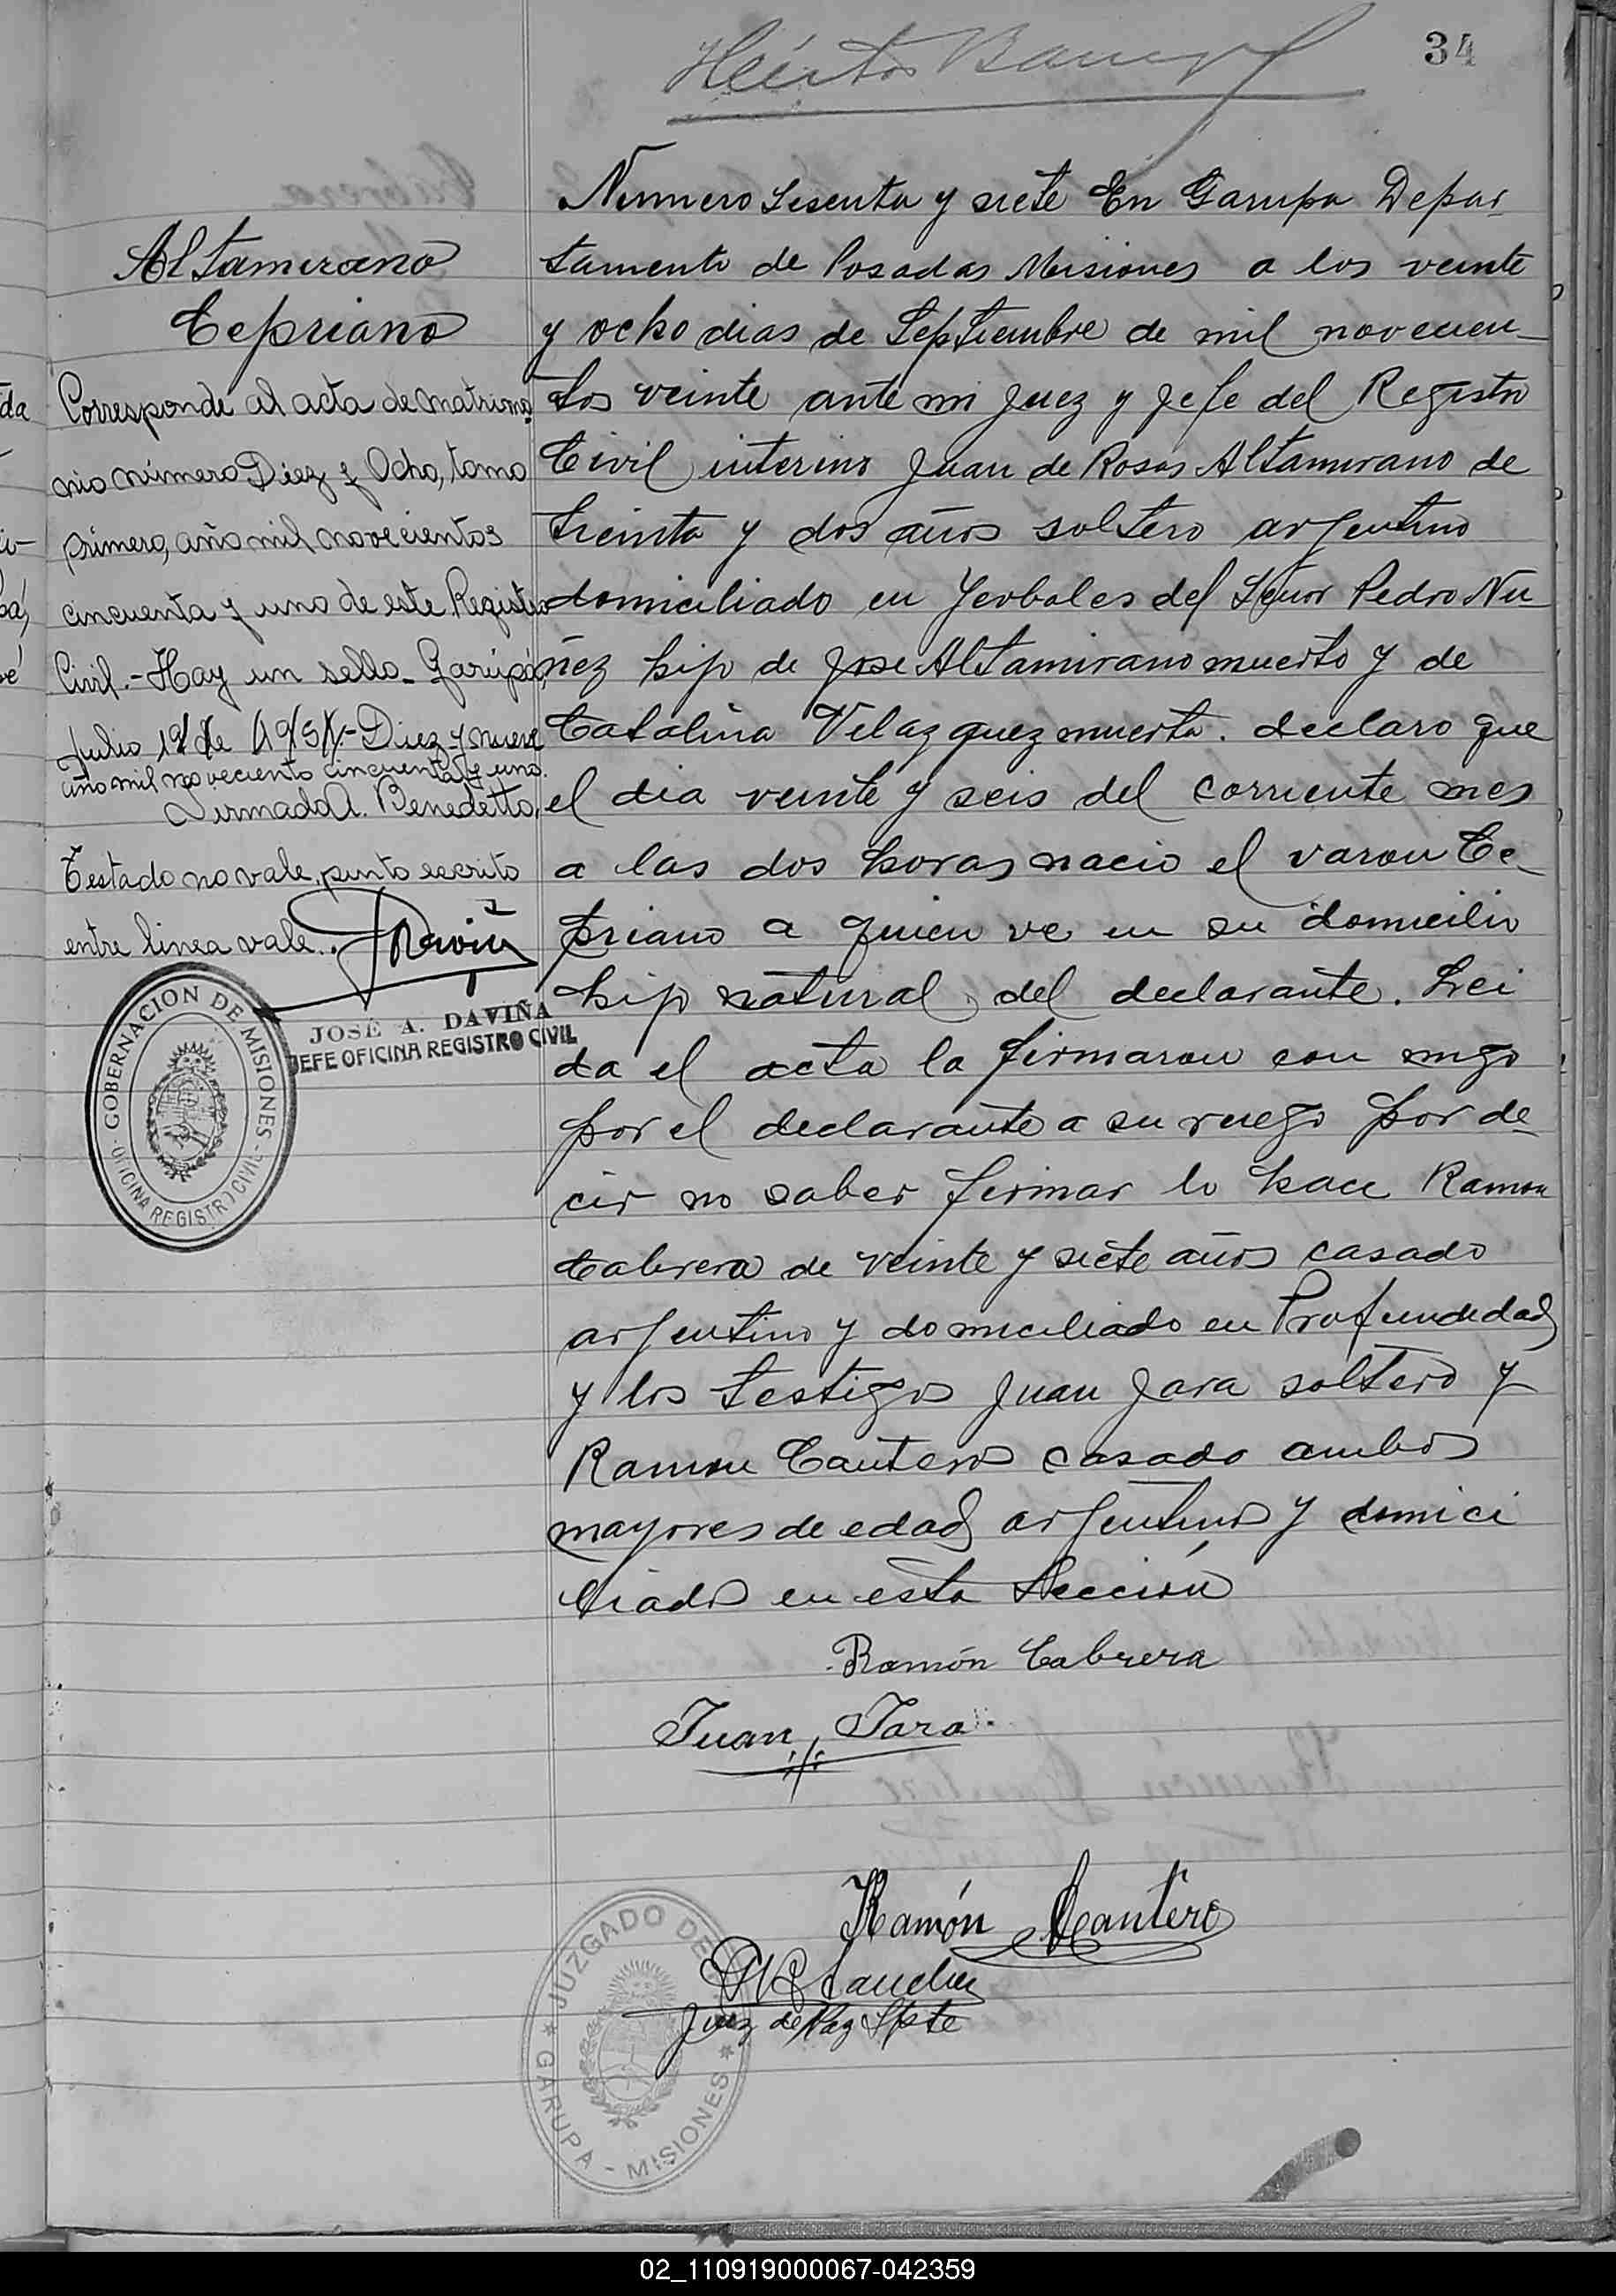 34
Altamirano
Cepriano
Corresponde al acta de matrimo
nio número Diez y Ocho, tomo
primero, año mil novecientos
cincuenta y uno de este Registro
Civil.- Hay un sello - Garupá,
Julio 19 de 1951.- Diez y nueve
año mil novecientos cincuenta y uno.
Firmado A. Benedetto.
Testado no vale, punto escrito
entre linea vale.
JOSÉ A. DAVIÑA
JEFE OFICINA REGISTRO CIVIL
GOBERNACION DE MISIONES
OFICINA REGISTRO CIVIL
Numero Sesenta y siete En Garupa Depar-
tamento de Posadas Misiones a los veinte
y ocho dias de Septiembre de mil novecien-
tos veinte ante mi Juez y Jefe del Registro
Civil interino Juan de Rosas Altamirano de
treinta y dos años soltero argentino
domiciliado en Yerbales del Señor Pedro Nu
ñez hijo de Jose Altamirano muerto y de
Catalina Velazquez muerta. declaro que
el dia veinte y seis del corriente mes
a las dos horas nacio el varon Ce-
priano a quien ve en su domicilio
hijo natural del declarante. Lei
da el acta la firmaron con migo
por el declarante a su ruego por de-
cir no saber firmar lo hace Ramon
Cabrera de veinte y siete años casado
argentino y domiciliado en Profundidad
y los testigos Juan Jara soltero y
Ramon Cantero casado ambos
mayores de edad argentinos y domici
liados en esta Sección
Ramón Cabrera
Juan Jara
Ramón Cantero
Sanchez
Juez de Paz Splte
JUZGADO DE
GARUPA - MISIONES
02_110919000067-042359